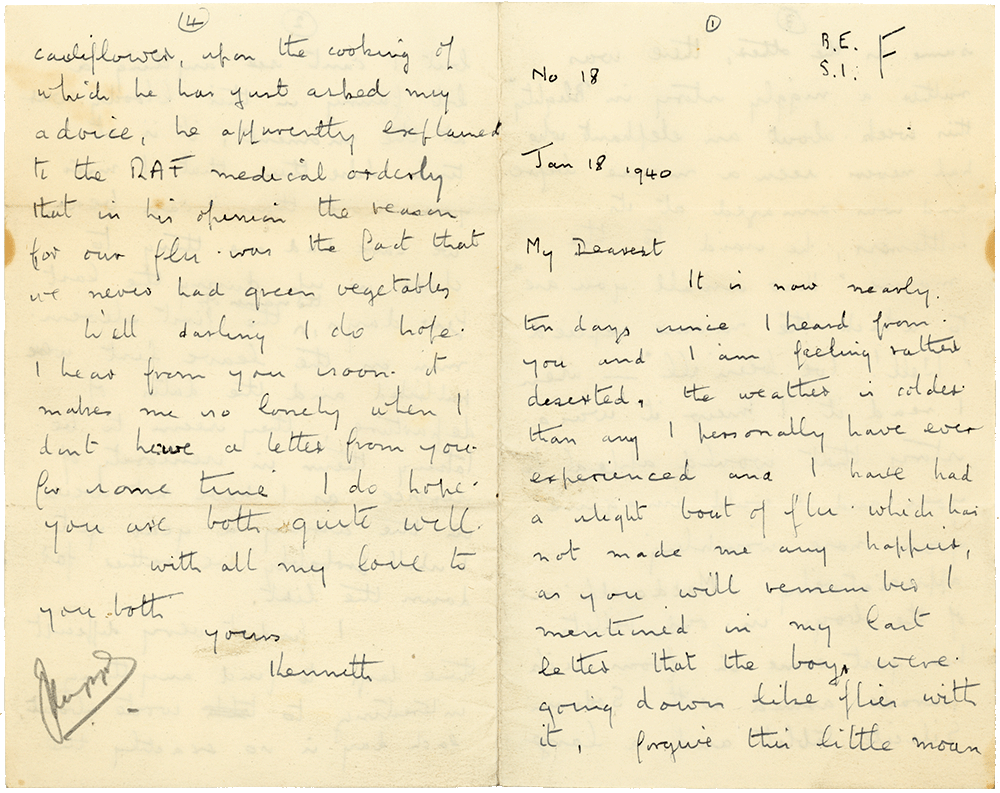 4
cauliflower, upon the cooking of
which he has just asked my
advice, he apparently explained
to the RAF medical orderly
that in his opinion the reason
for our flu was the fact that
we never had green vegetables
Well darling I do hope
I hear from you soon. it
makes me so lonely when I
dont have a letter from you
for some time I do hope
you are both quite well.
with all my love to
you both
yours
Kenneth
1
B.E.
S.1. F
No 18
Jan 18 1940
My Dearest
It is now nearly
ten days since I heard from
you and I am feeling rather
deserted, the weather is colder
than any I personally have ever
experienced and I have had
a slight bout of flu which has
not made me any happier,
as you will remember I
mentioned in my last
letter that the boys were
going down like flies with
it, forgive this little moan